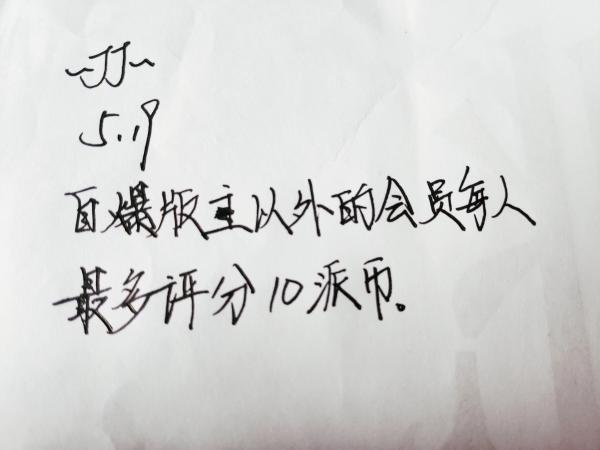 ~JJ~
5.19
自爆版主以外的会员每人
最多评分10派币。